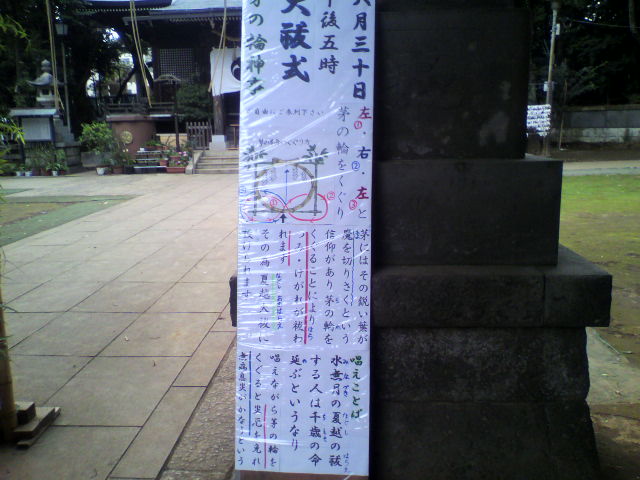 六月三十日
午後五時
大祓式
茅の輪神事
自由にご参列下さい
茅の輪のくぐり方
左・右・左と
① ② ③
茅の輪をくぐり
① ② ③
茅にはその鋭い葉が
魔を切りさくという
信仰があり茅の輪を
くぐることによりはら
つみ・けがれが祓わ
れます
その為夏越大祓に
唱えことば
水無月の夏越の祓
みなづき なごし はらえ
する人は千歳の命
ちとせ
延ぶというなり
の
唱えながら茅の輪を
くぐると災厄を免れ
無病息災がかなうという